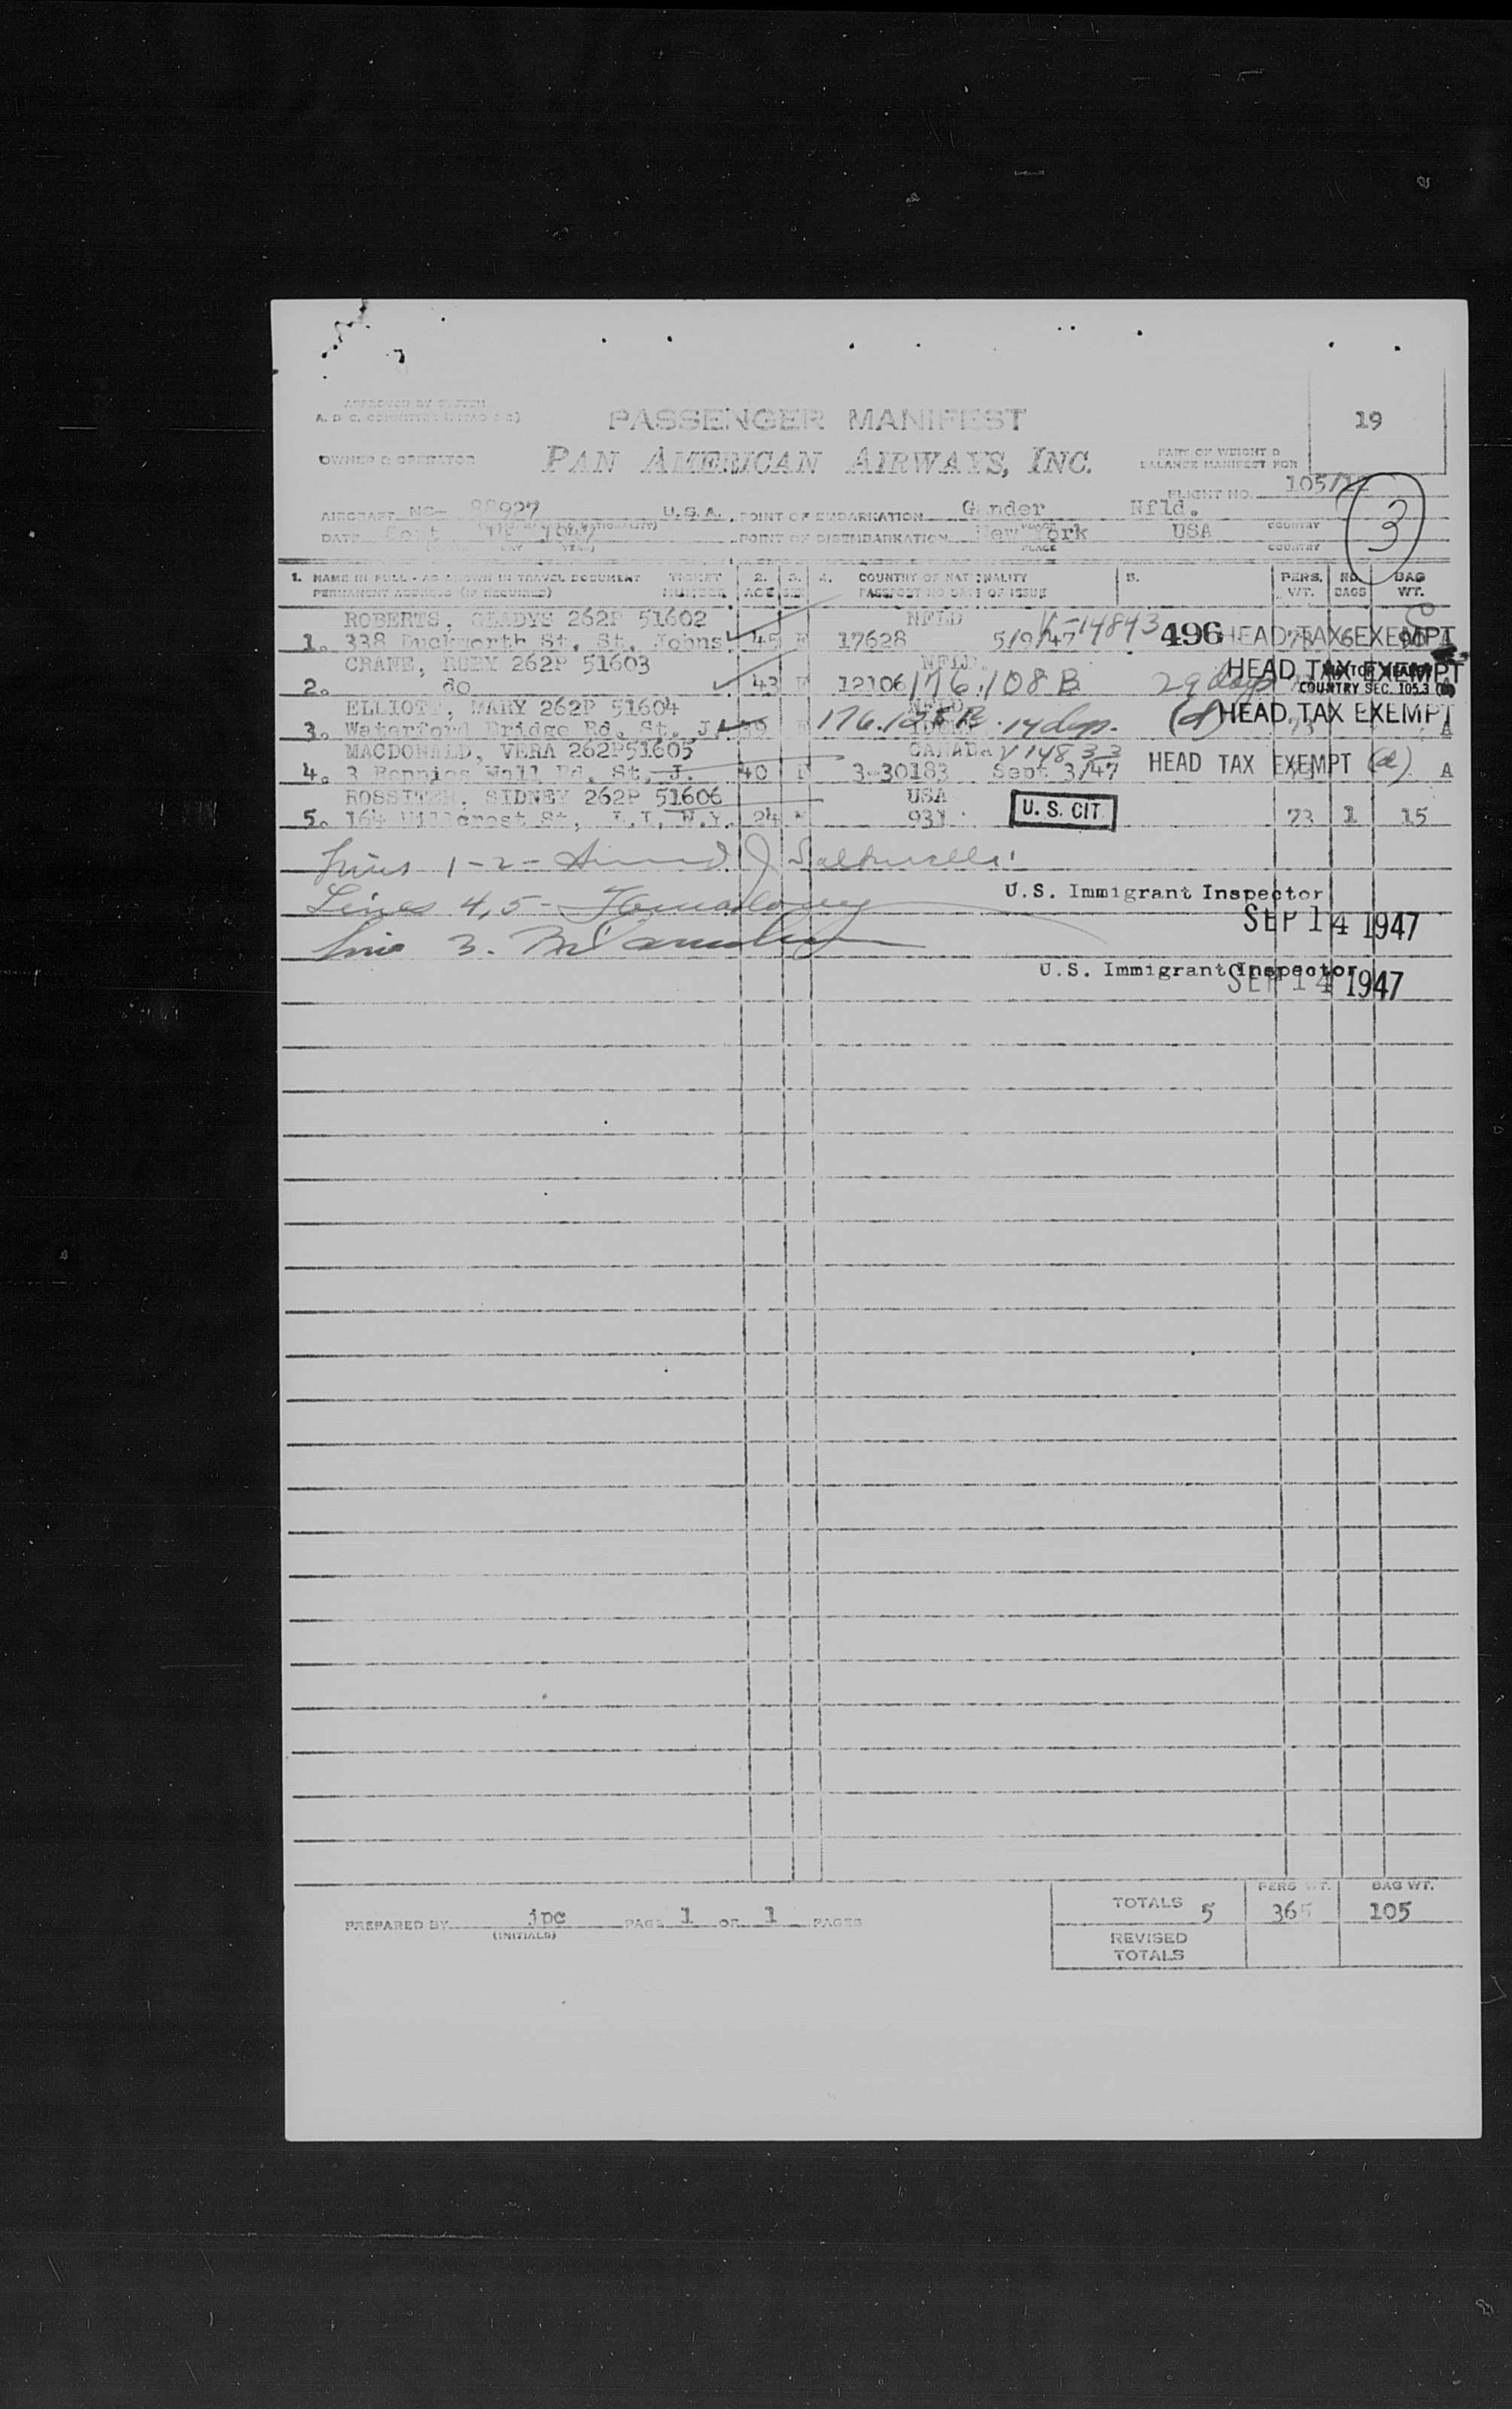 PASSENGER MANIFEST
19
OWNER & OPERATOR
PAN AMERICAN AIRWAYS, INC.
PART OF WEIGHT &
BALANCE MANIFEST FOR
FLIGHT NO. 105/
3
AIRCRAFT NC- 88927 U.S.A. POINT OF EMBARKATION Gander Nfld.
DATE Sept 1947 POINT OF DISEMBARKATION New York USA
PLACE COUNTRY
1. NAME IN FULL - AS SHOWN IN TRAVEL DOCUMENT TICKET 2. 3. 4. COUNTRY OF NATIONALITY 5. PERS. NO. BAG
PERMANENT ADDRESS (IF REQUIRED) NUMBER AGE SEX PASSPORT NO DATE OF ISSUE WT. BAGS WT.
ROBERTS, GLADYS 262P 51602 NFLD V-14843
1. 338 Duckworth St, St. Johns 45 F 17628 5/9/47 496 HEAD TAX EXEMPT
CRANE, RUBY 262P 51603 NFLD. HEAD TAX EXEMPT
2. do 43 F 12106 176.108 B 29 days COUNTRY SEC. 105.3
ELLIOTT, MARY 262P 51604 NFLD
3. Waterford Bridge Rd, St. J. 14 days. (d) HEAD TAX EXEMPT A
MACDONALD, VERA 262P51605 CANADA V 14833
4. 3 Rennies Mill Rd, St. J. 40 F 3-30183 Sept 3/47 HEAD TAX EXEMPT (d) A
ROSSITER, SIDNEY 262P 51606 USA
5. 164 Hillcrest St, L.I, N.Y. 24 931 U. S. CIT. 73 1 15
Lines 1-2-
Lines 4,5- U.S. Immigrant Inspector
SEP 14 1947
Line 3.
U.S. Immigrant Inspector
SEP 14 1947
PREPARED BY jpc PAGE 1 OF 1 PAGES
(INITIALS)
PERS WT. BAG WT.
TOTALS 5 365 105
REVISED
TOTALS